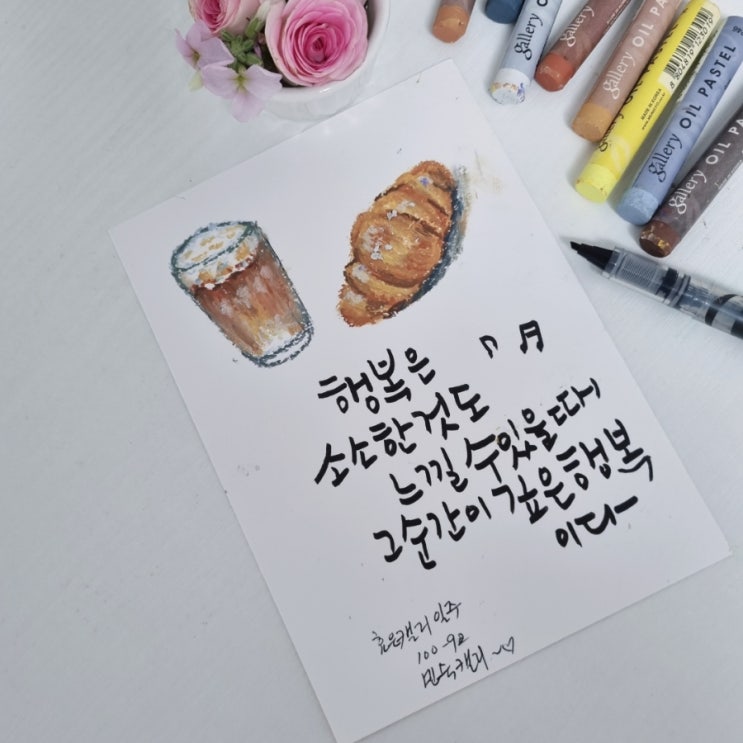 행복은
소소한것도
느낄 수있을때
그순간이 깊은행복
이다
100-92
gallery
gallery
gallery OIL PASTEL
gallery OIL PASTEL
gallery OIL PASTEL
MADE IN KOREA